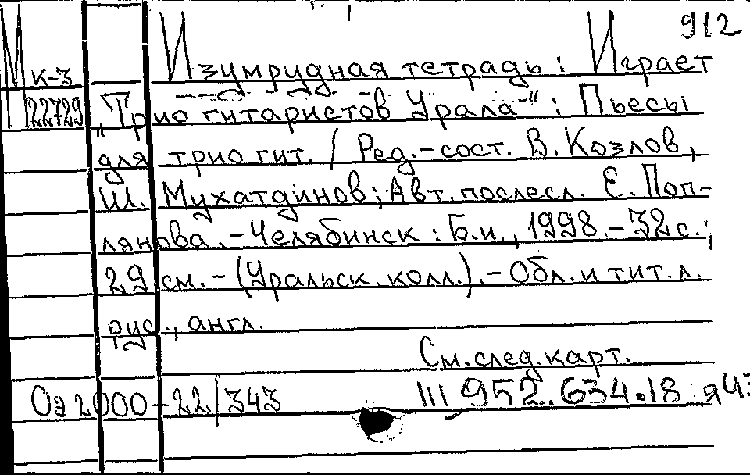 912
М к-3
22729
Изумрудная тетрадь: Играет
"Трио гитаристов Урала": Пьесы
для трио гит. / Ред.-сост. В. Козлов,
Ш. Мухатдинов; Авт. послесл. Е. Поп-
лянова. - Челябинск: Б.и., 1998. - 32 с.;
29 см. - (Уральск. колл.). - Обл. и тит. л.
рус., англ.
См. след. карт.
Оэ 2000-22/343 Ш 952.634.18 я43